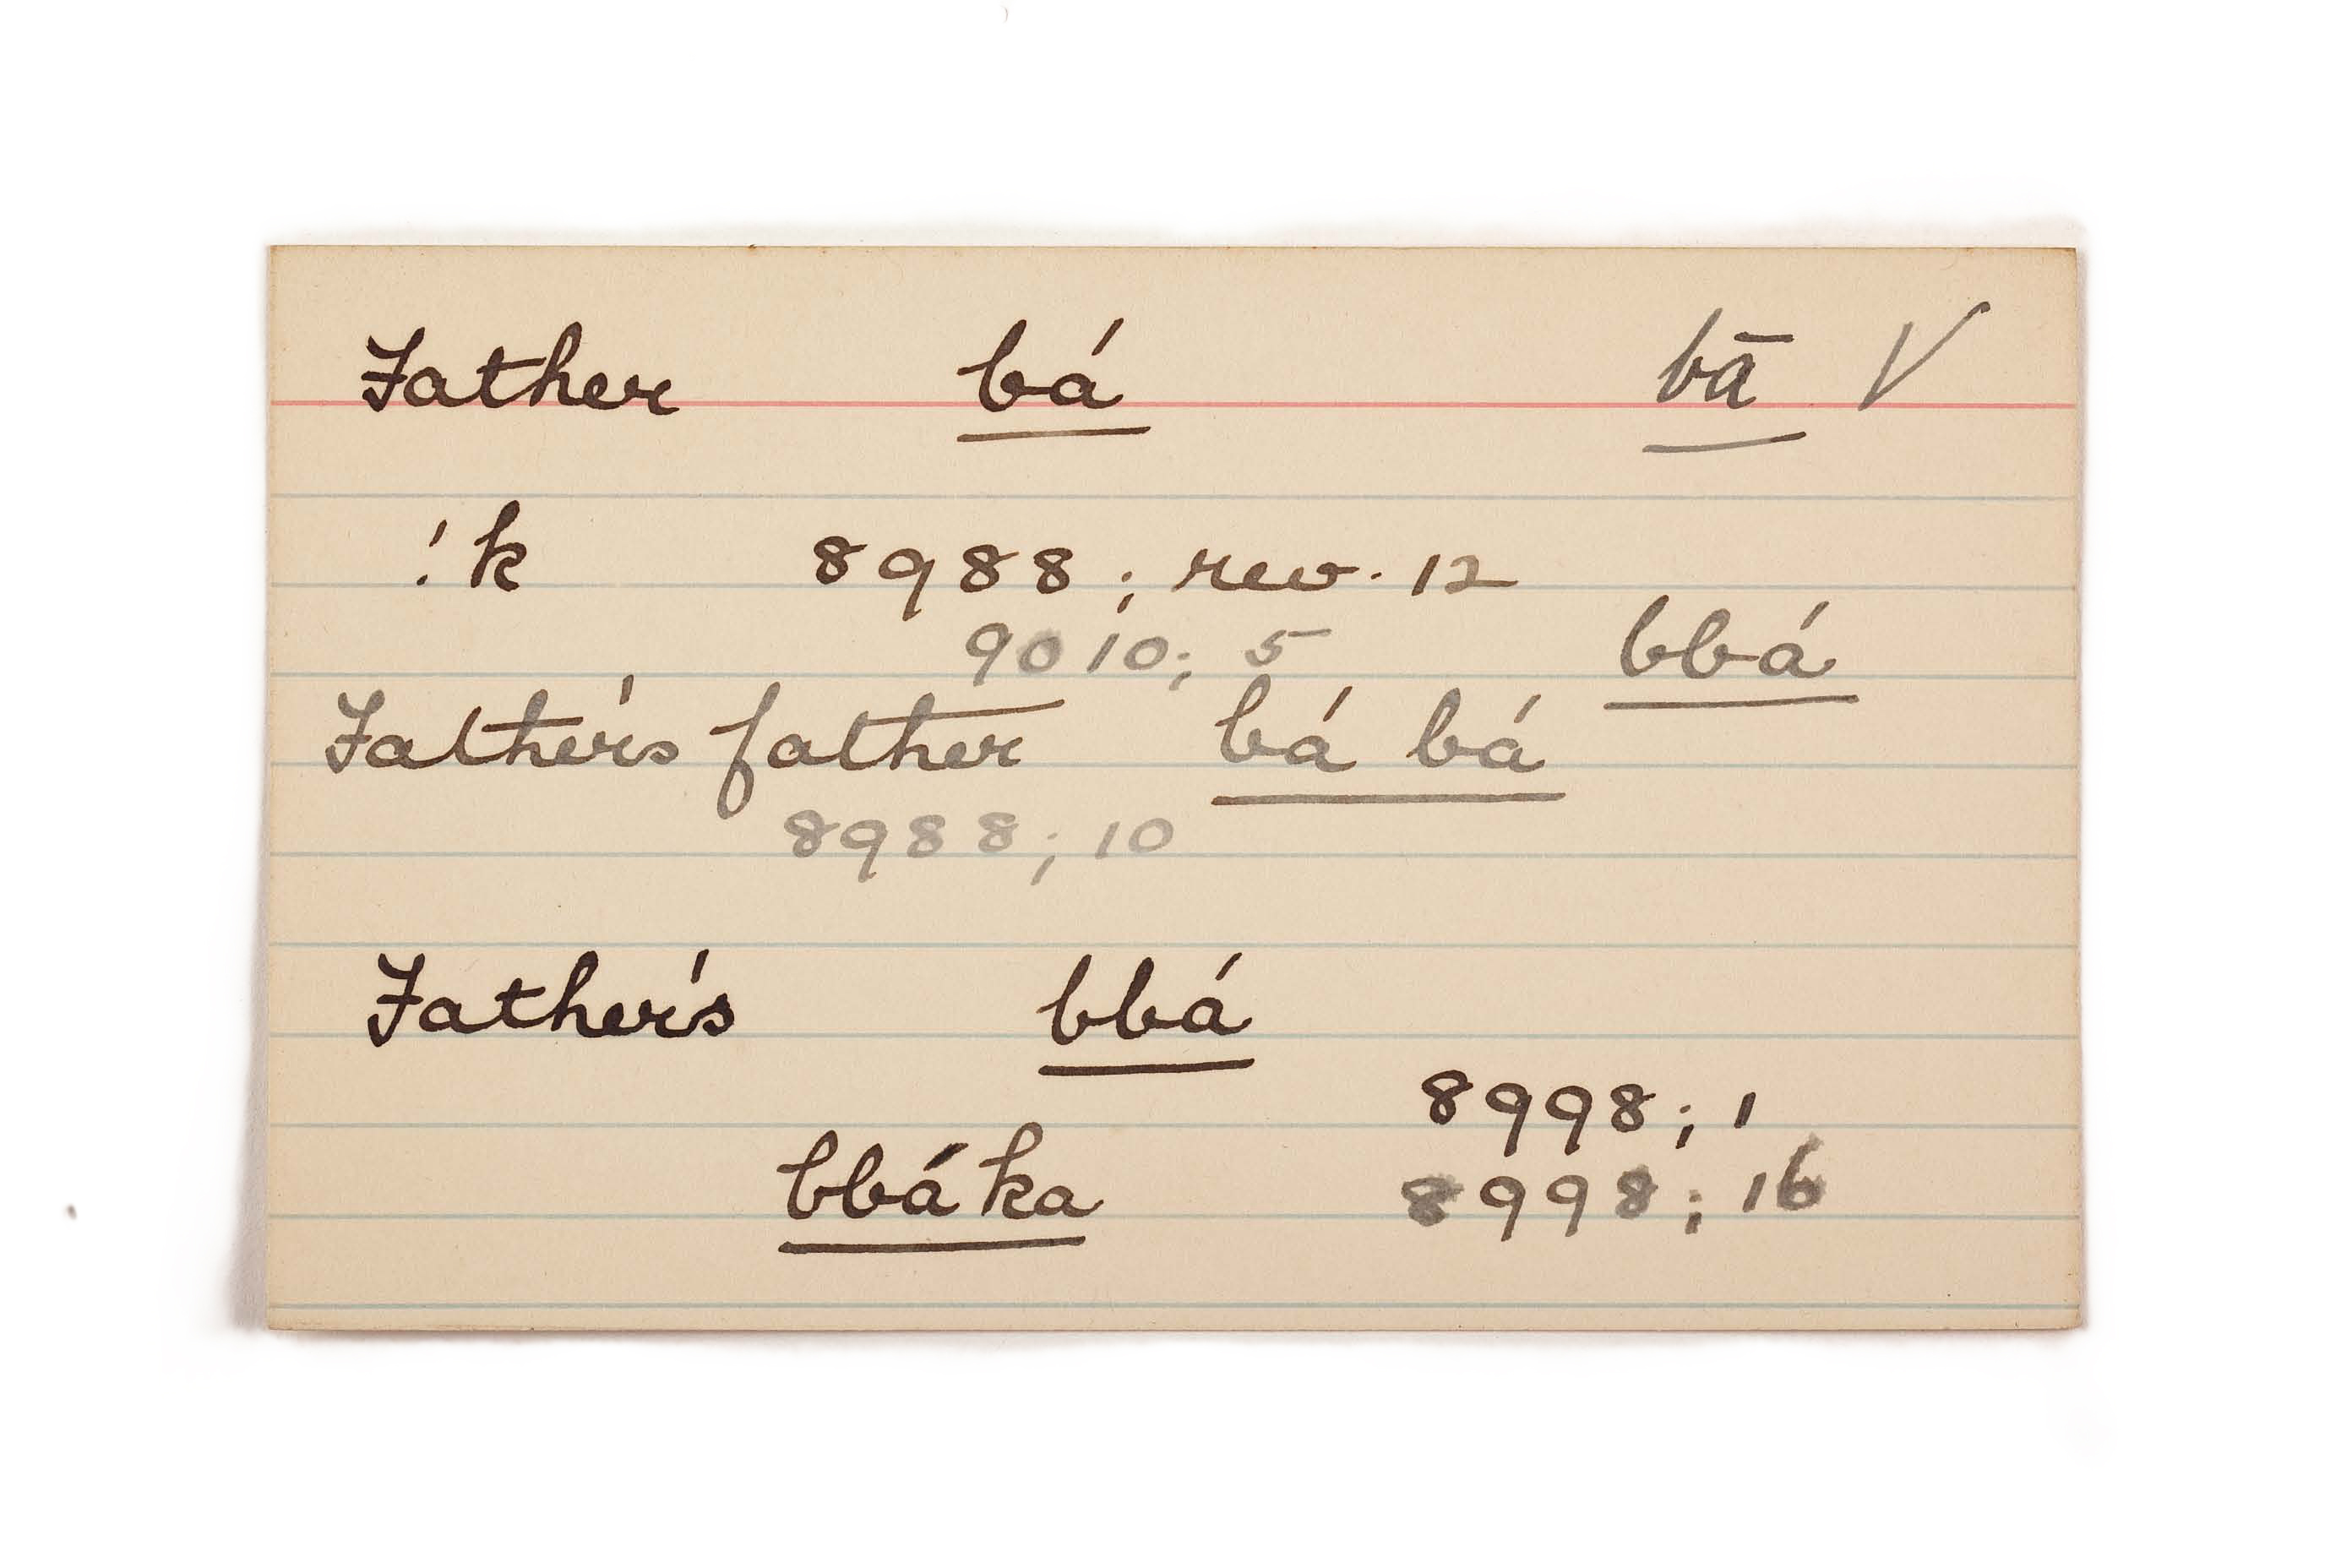 Father bá bā V
!k 8988; rev. 12
9010; 5 bbá
Father's father bá bá
8988; 10
Father's bbá
8998; 1
bbá ka 8998; 16